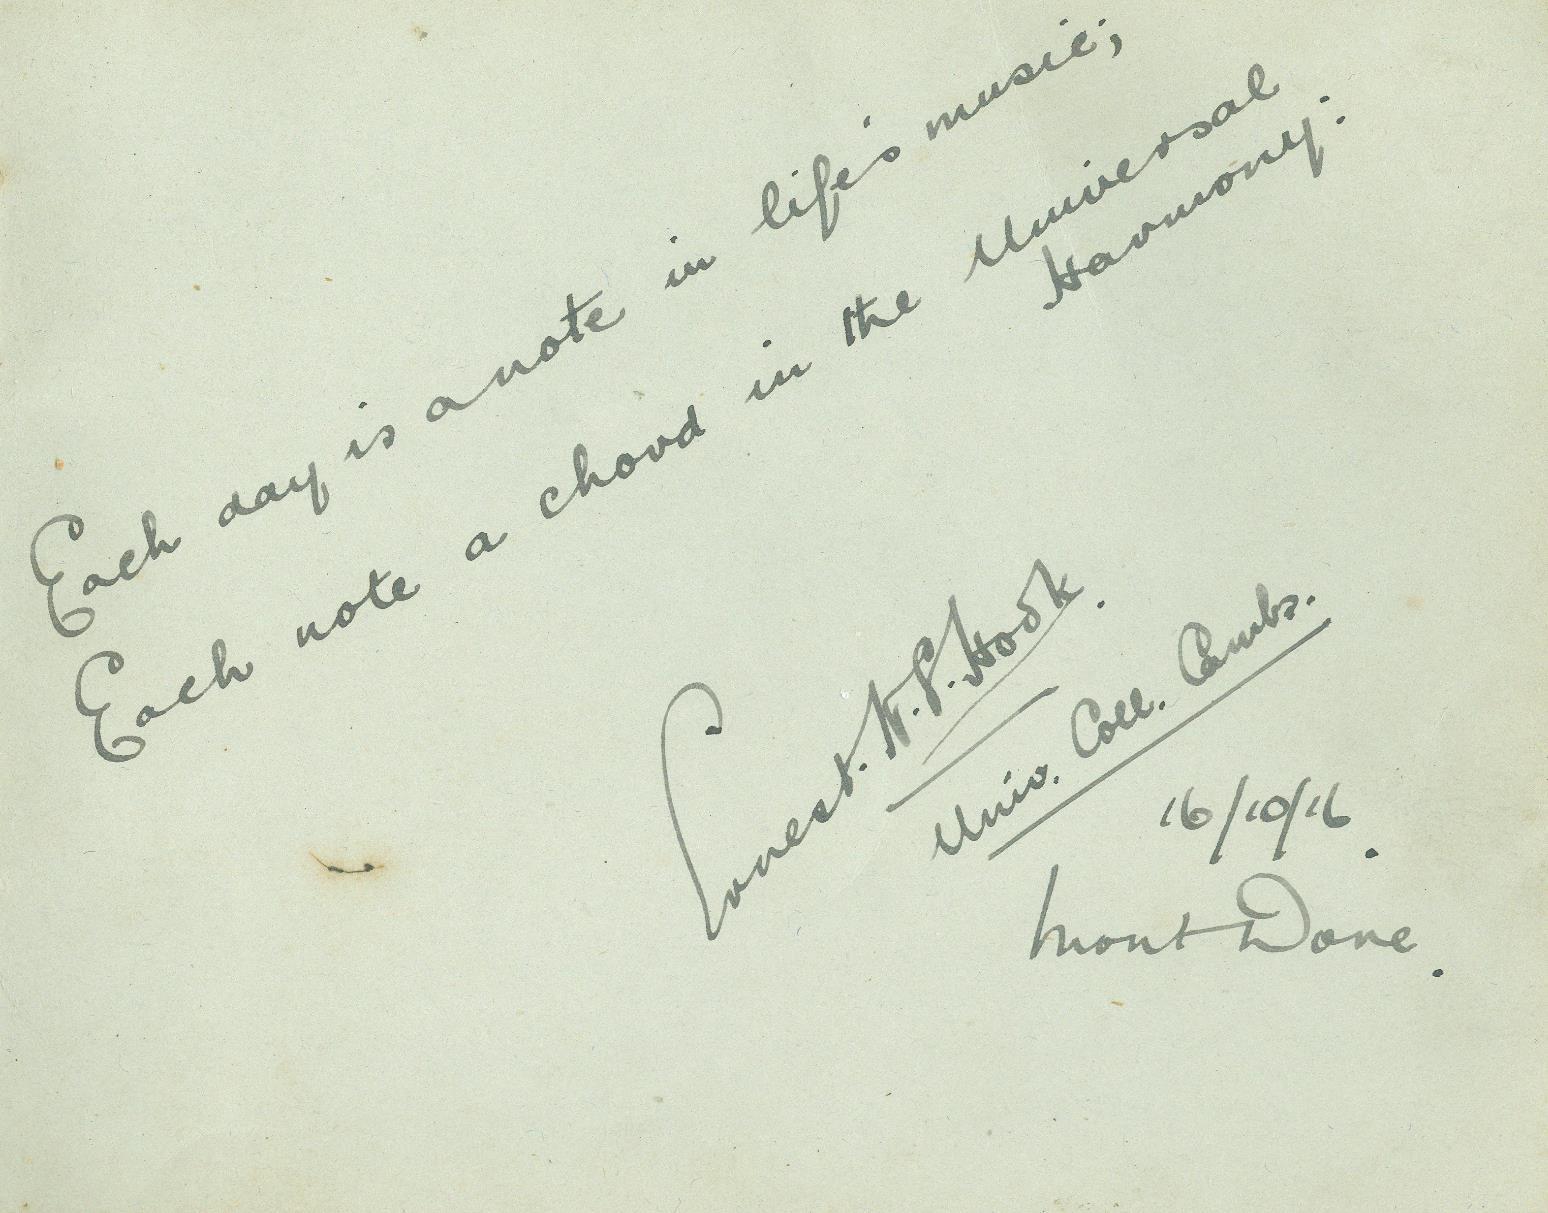 Each day is a note in life's music;
Each note a chord in the Universal
Harmony:
Ernest. W. G. Hook.
Univ. Coll. Cambs.
16/10/16.
Mont Dore.